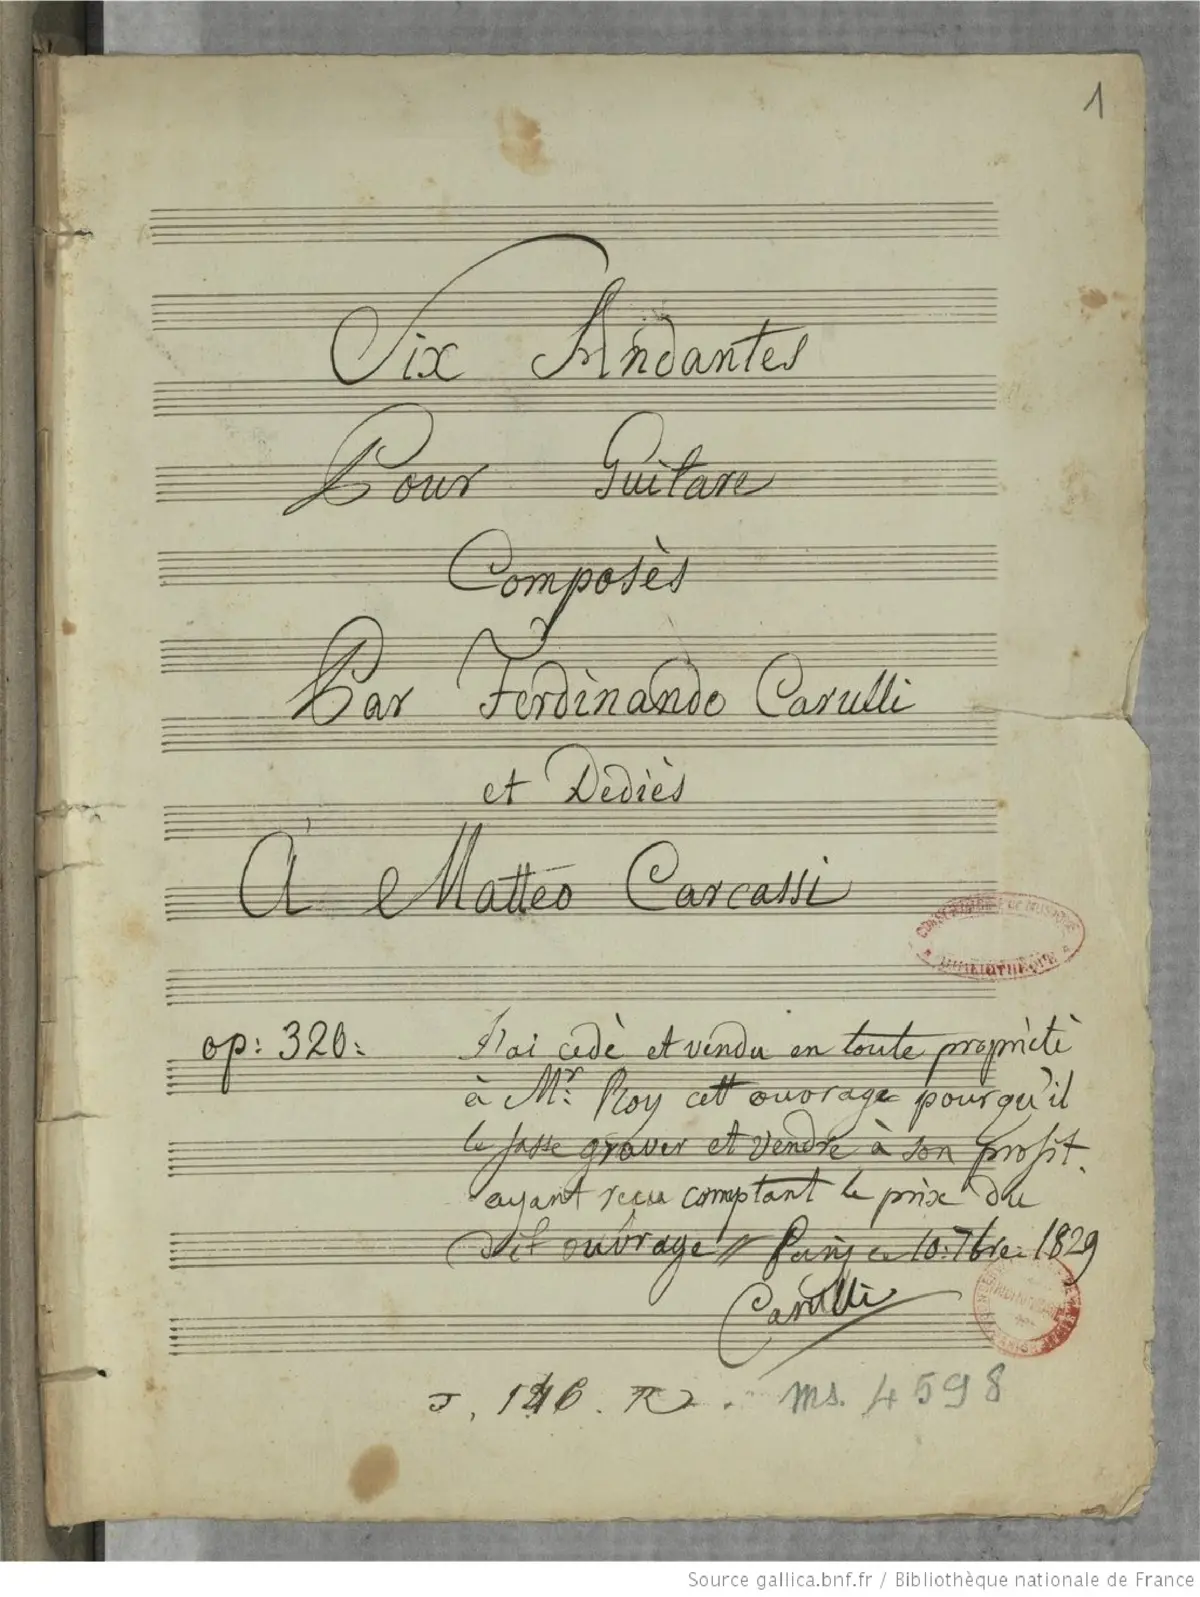 1
Six Andantes
Pour Guitare
Composès
Par Ferdinando Carulli
et Dèdiès
A Matteo Carcassi
CONSERVATOIRE DE MUSIQUE
BIBLIOTHEQUE
op: 320:
J'ai cedè et vendu en toute propriètè
à Mr. Roy cett ouvrage pour qu'il
le fasse graver et vendre à son profit.
ayant recu comptant le prix du
dit ouvrage // Paris ce 10. 7bre. 1829
Carulli
ms. 4598
Source gallica.bnf.fr / Bibliothèque nationale de France